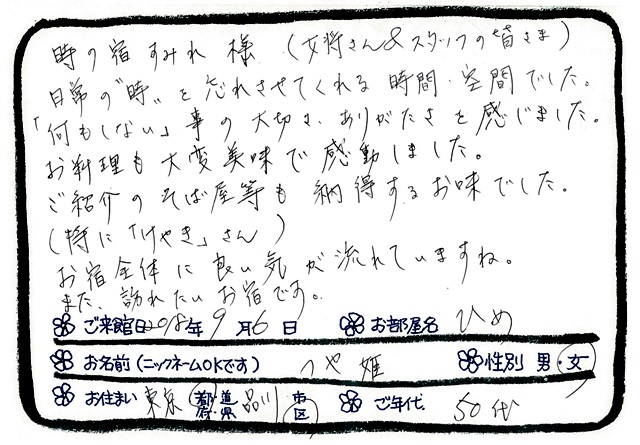 時の宿 すみれ 様 (女将さん&スタッフの皆さま)
日常の"時"を忘れさせてくれる時間・空間でした。
「何もしない」事の大切さ、ありがたさを感じました。
お料理も大変美味で感動しました。
ご紹介のそば屋等も納得するお味でした。
(特に「けやき」さん)
お宿全体に良い気が流れていますね。
また、訪れたいお宿です。
ご来館日 2018年 9月 6日 お部屋名 ひめ
お名前(ニックネームOKです) つや姫 性別 男・女
お住まい 東京 都道府県 品川 市区 ご年代 50代